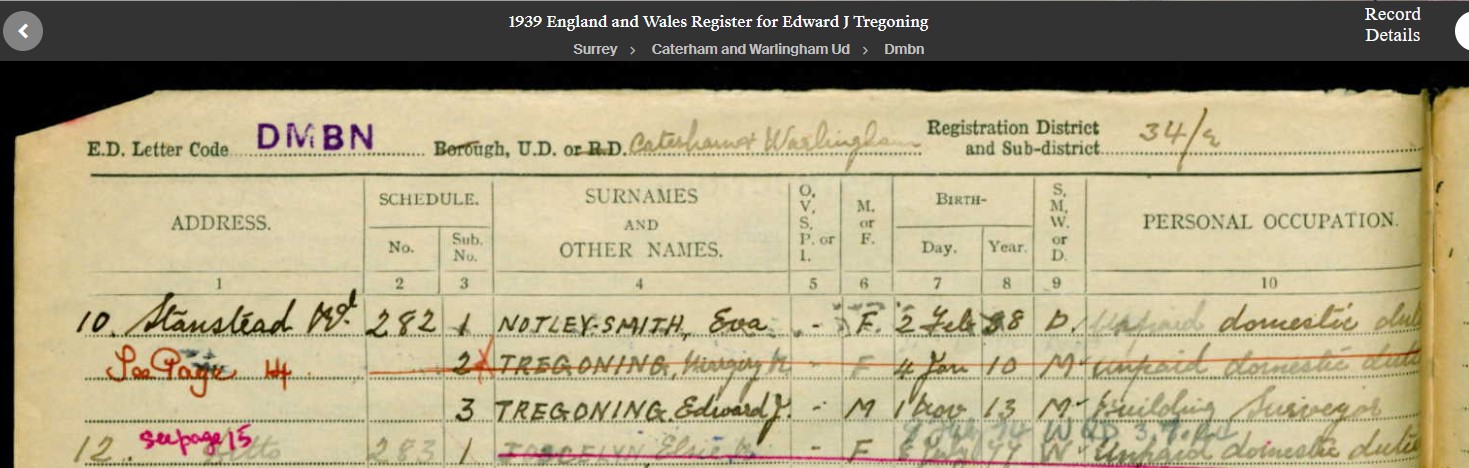 1939 England and Wales Register for Edward J Tregoning
Record Details
Surrey > Caterham and Warlingham Ud > Dmbn
E.D. Letter Code DMBN Borough, U.D. or R.D. Caterham & Warlingham Registration District and Sub-district 34/2
ADDRESS. SCHEDULE. No. Sub. No. SURNAMES AND OTHER NAMES. O, V, S, P. or I. M. or F. BIRTH- Day. Year. S, M, W. or D. PERSONAL OCCUPATION.
1 2 3 4 5 6 7 8 9 10
10. Stanstead Rd. 282 1 NOTLEY-SMITH, Eva - F. 2 Feb 88 D. Unpaid domestic
See Page 14 2 X TREGONING, - F 4 Jan 10 M unpaid domestic
3 TREGONING, Edward J. - M 1 Nov 13 M Building Surveyor
12. see page 15 Ditto 283 1 - F W unpaid domestic duties